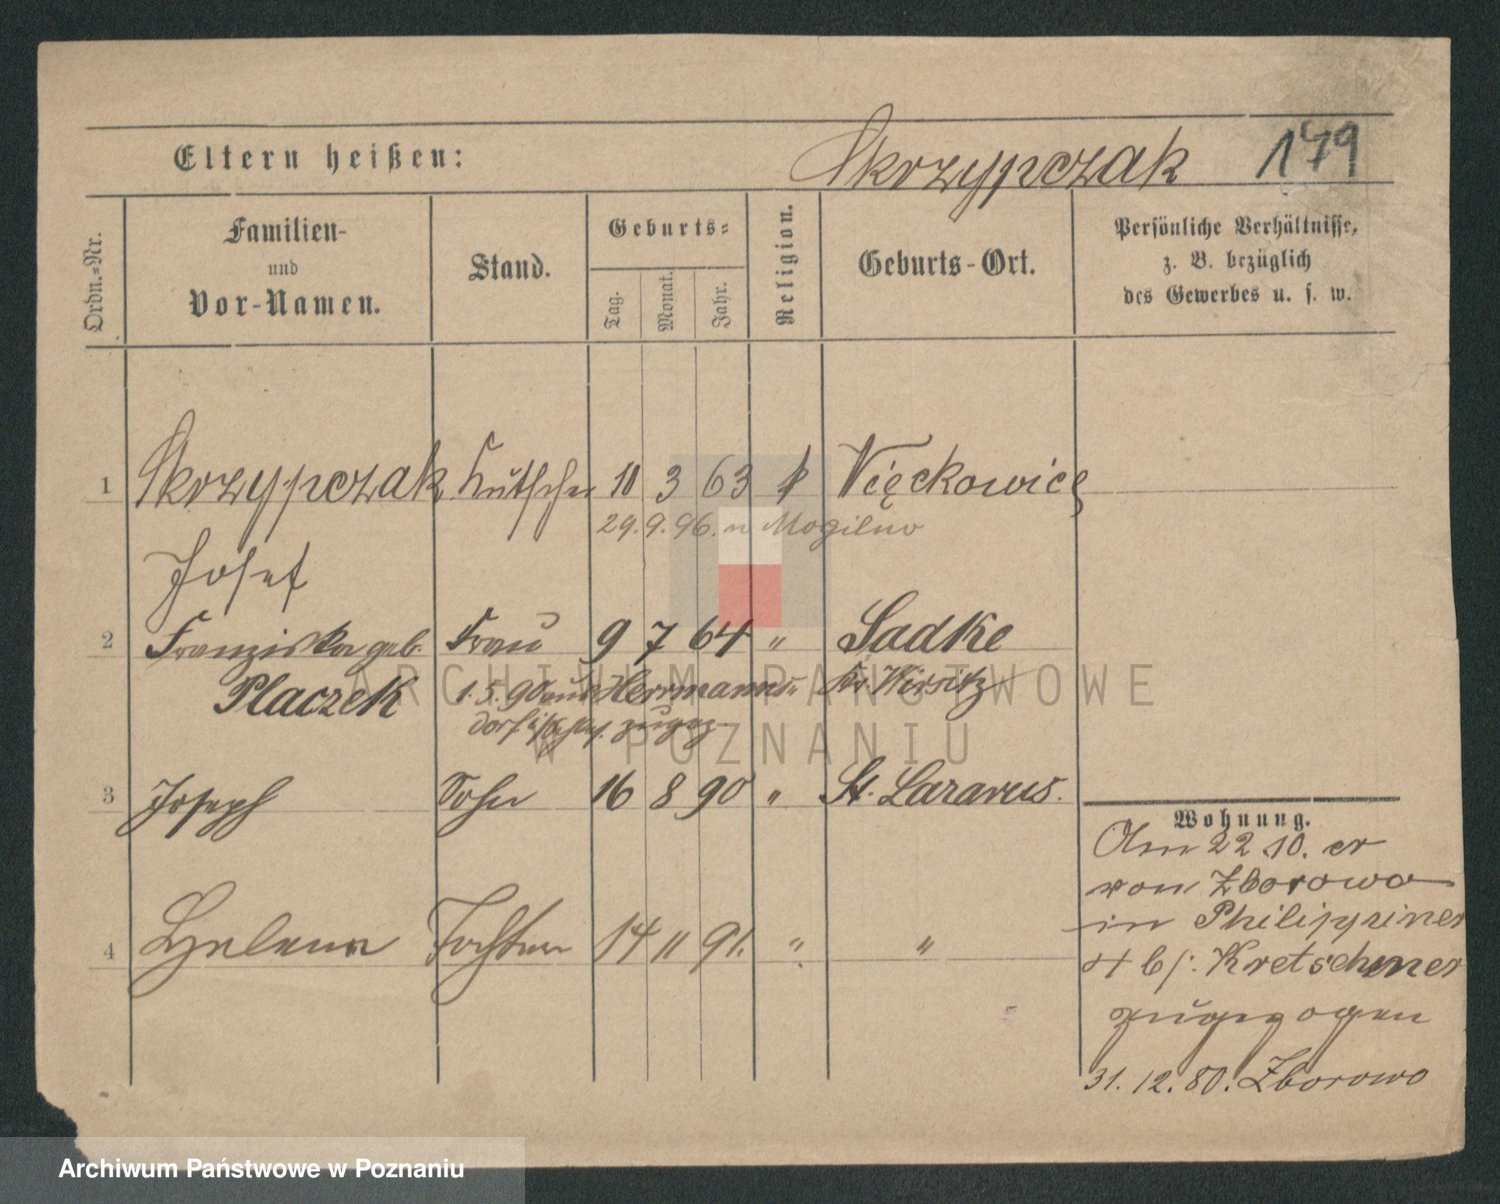 Eltern heißen: Skrzypczak 179
Ordn.-Nr.
Familien-
und
Vor-Namen.
Stand.
Geburts-
Tag.
Monat.
Jahr.
Religion.
Geburts-Ort.
Persönliche Verhältnisse,
z. B. bezüglich
des Gewerbes u. s. w.
1 Skrzypczak Kutscher 10 3 63 k Więckowice
29.9.96. n Mogilno
Josef
2 Franziska geb. Frau 9 7 64 " Sadke
Placzek 1.5.90 aus Herrmanns- Kr. Wirsitz
dorf zugez
3 Joseph Sohn 16 8 90 " St. Lazarus.
4 Helena Tochter 14 11 91. " "
Wohnung.
Am 22 10. er
von Zborowo
in Philippinen
4 b/: Kretschmer
zugezogen
31.12.80. Zborowo
ARCHIWUM PAŃSTWOWE
W POZNANIU
Archiwum Państwowe w Poznaniu